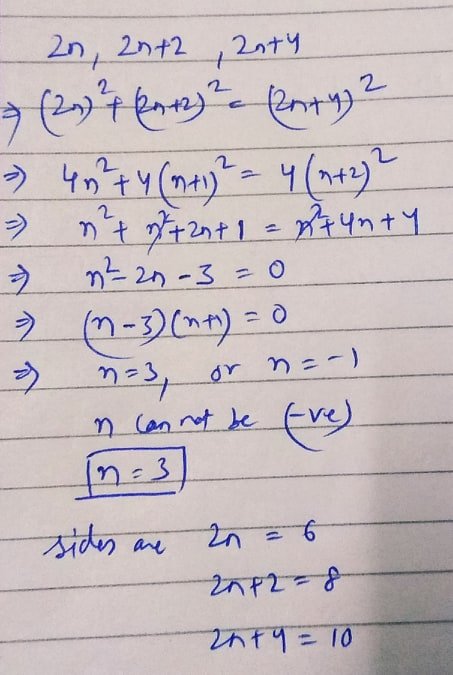 2n, 2n+2, 2n+4
⇒ (2n)² + (2n+2)² = (2n+4)²
⇒ 4n² + 4(n+1)² = 4(n+2)²
⇒ n² + n² + 2n + 1 = n² + 4n + 4
⇒ n² - 2n - 3 = 0
⇒ (n-3)(n+1) = 0
⇒ n=3, or n=-1
n can not be (-ve)
n = 3
sides are 2n = 6
2n+2 = 8
2n+4 = 10